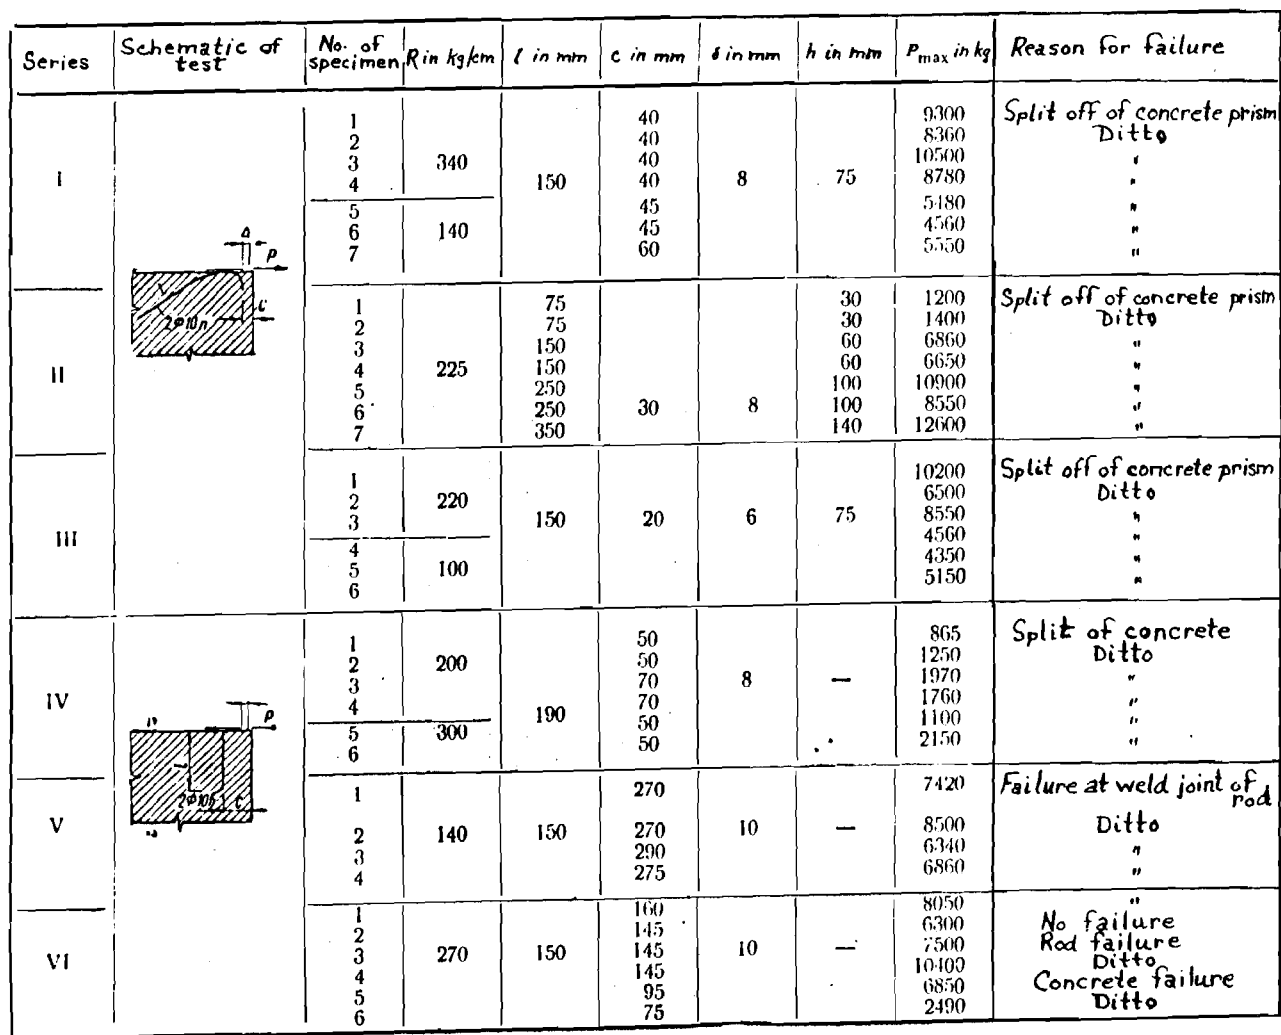 Series | Schematic of test | No. of specimen | R in kg/cm | l in mm | c in mm | δ in mm | h in mm | Pmax in kg | Reason for failure
I | 1 | 340 | 150 | 40 | 8 | 75 | 9300 | Split off of concrete prism
2 | 40 | 8360 | Ditto
3 | 40 | 10500 | "
4 | 40 | 8780 | "
5 | 140 | 45 | 5480 | "
6 | 45 | 4560 | "
7 | 60 | 5550 | "
Δ
P
C
2Φ10п
II | 1 | 225 | 75 | 30 | 8 | 30 | 1200 | Split off of concrete prism
2 | 75 | 30 | 1400 | Ditto
3 | 150 | 60 | 6860 | "
4 | 150 | 60 | 6650 | "
5 | 250 | 100 | 10900 | "
6 | 250 | 100 | 8550 | "
7 | 350 | 140 | 12600 | "
III | 1 | 220 | 150 | 20 | 6 | 75 | 10200 | Split off of concrete prism
2 | 6500 | Ditto
3 | 8550 | "
4 | 100 | 4560 | "
5 | 4350 | "
6 | 5150 | "
IV | 1 | 200 | 190 | 50 | 8 | — | 865 | Split of concrete
2 | 50 | 1250 | Ditto
3 | 70 | 1970 | "
4 | 70 | 1760 | "
5 | 300 | 50 | 1100 | "
6 | 50 | 2150 | "
P
C
V | 1 | 140 | 150 | 270 | 10 | — | 7420 | Failure at weld joint of rod
2 | 270 | 8500 | Ditto
3 | 290 | 6340 | "
4 | 275 | 6860 | "
VI | 1 | 270 | 150 | 160 | 10 | — | 8050 | "
2 | 145 | 6300 | No failure
3 | 145 | 7500 | Rod failure
4 | 145 | 10400 | Ditto
5 | 95 | 6850 | Concrete failure
6 | 75 | 2490 | Ditto